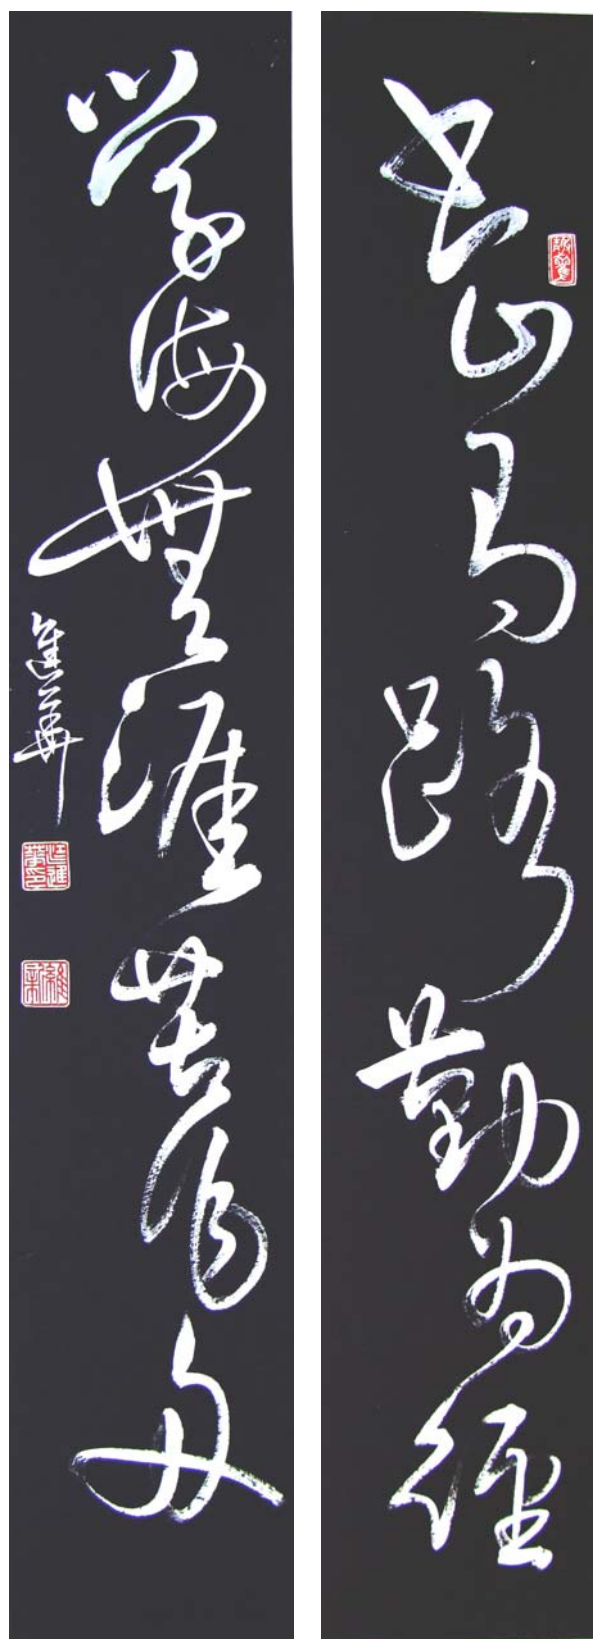 書山有路勤為徑
學海無涯苦作舟
進華